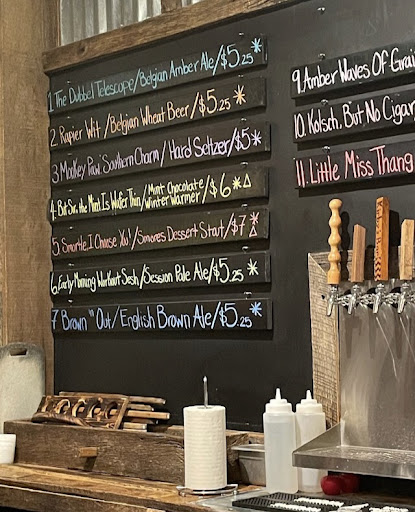 1. The Dubbel Telescope/Belgian Amber Ale/$5.25*
2. Rapier Wit/Belgian Wheat Beer/$5.25*
3. Monkey Paw' Southern Charm/Hard Seltzer/$5*
4. But Sir, the Mint Is Wafer Thin/Mint Chocolate Winter Warmer/$6*△
5. Smortle, I Choose You!/Smores Dessert Stout/$7*△
6. Early Morning Workout Sesh/Session Pale Ale/$5.25*
7. Brown "Out/English Brown Ale/$5.25*
9. Amber Waves Of
10. Kolsch, But No Cigar
11. Little Miss Thang